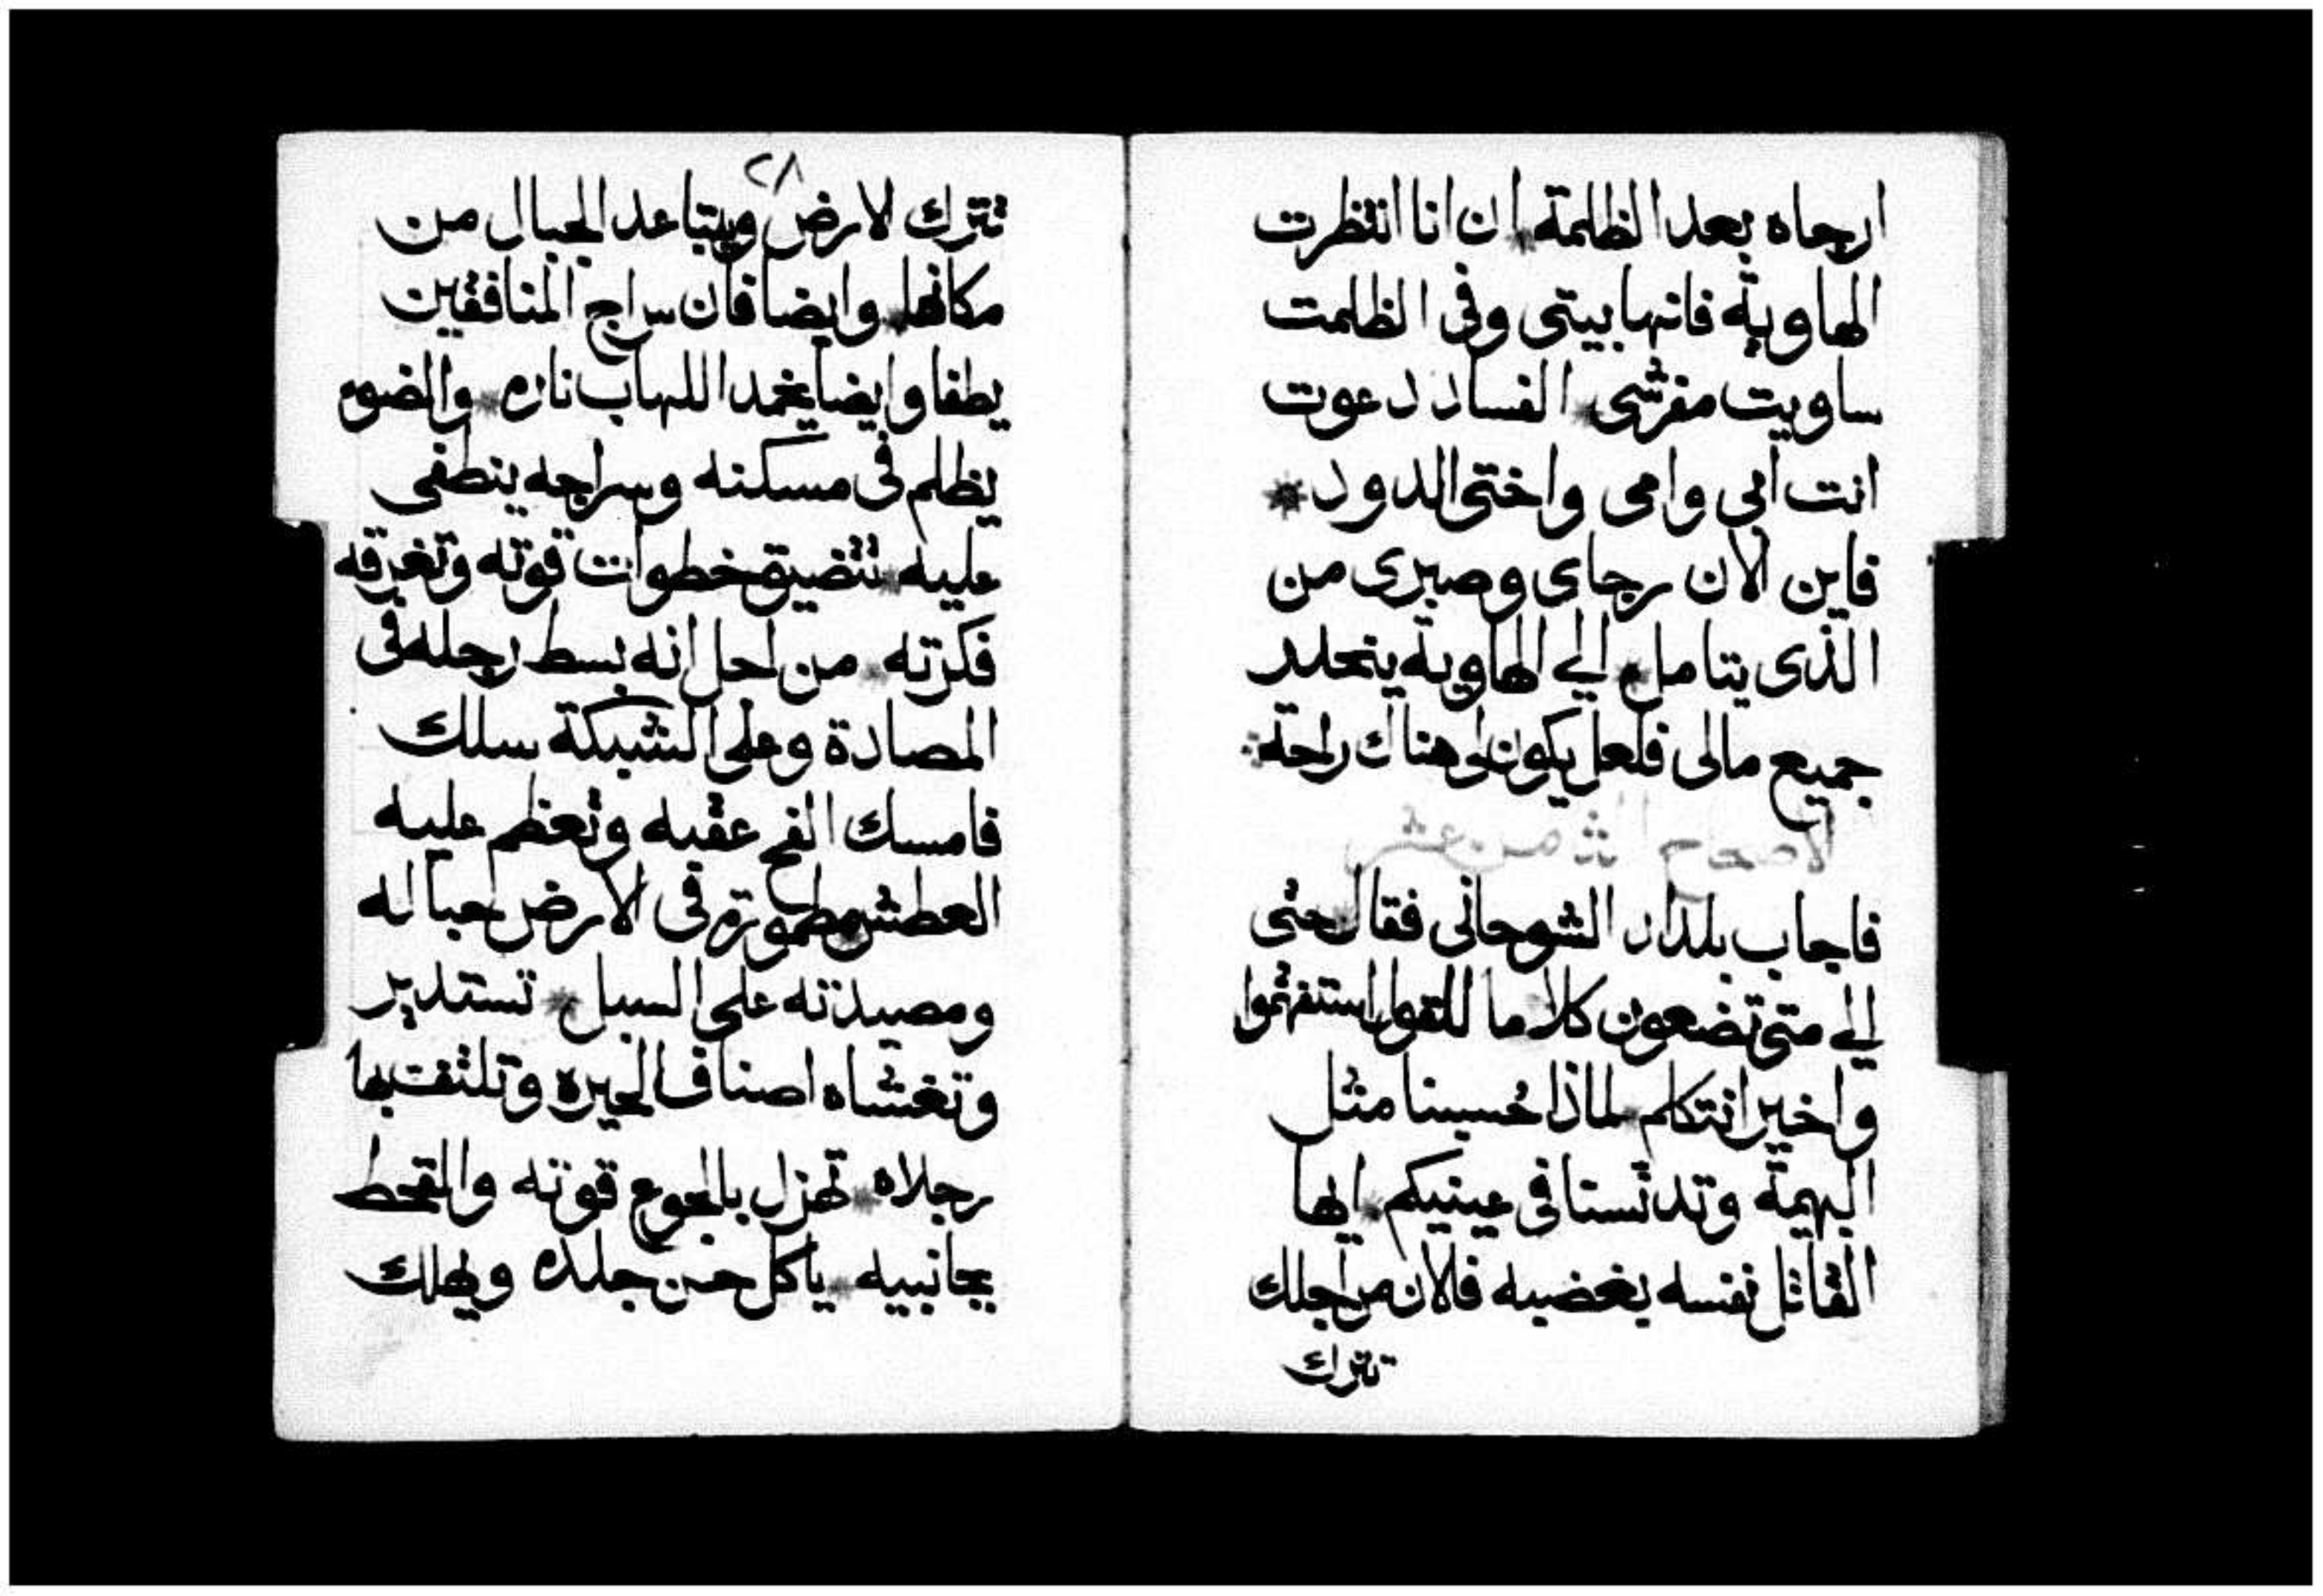 ارجاه بعد الظلمة * ان انا انتظرت
الهاوية فانها بيتى وفى الظلمت
ساويت مفرشى * الفساد دعوت
انت ابى وامى واختى الدود *
فاين الان رجاى وصبرى من
الذى يتامل * الي الهاوية ينحدر
جميع مالى فلعل يكون لى هناك راحة
الاصحاح الثامن عشر
فاجاب بلداد الشوحانى فقال حتى
الي متى تضعون كلاما للقول استفهموا
واخيرا نتكلم * لماذا حُسبنا مثل
البهيمة وتدنسنا فى عينيكم * ايها
القاتل نفسه بغضبه فلان من اجلك
تترك
٢٨
تترك الارض ويتباعد الجبال من
مكانها * وايضا فان سراج المنافقين
يطفا وايضا يخمد اللهاب ناره * والضوء
يظلم فى مسكنه وسراجه ينطفى
عليه * تتضيق خطوات قوته وتغرقه
فكرته * من اجل انه بسط رجله فى
المصادة وعلى الشبكة سلك
فامسك الفح عقبه وتعظم عليه
العطش * مطمورة فى الارض احباله
ومصيدته على السبل * تستدير
وتغشاه اصناف الحيره وتلتفت بها
رجلاه * تهزل بالجوع قوته والقحط
بجانبيه * ياكل حسن جلده ويهلك